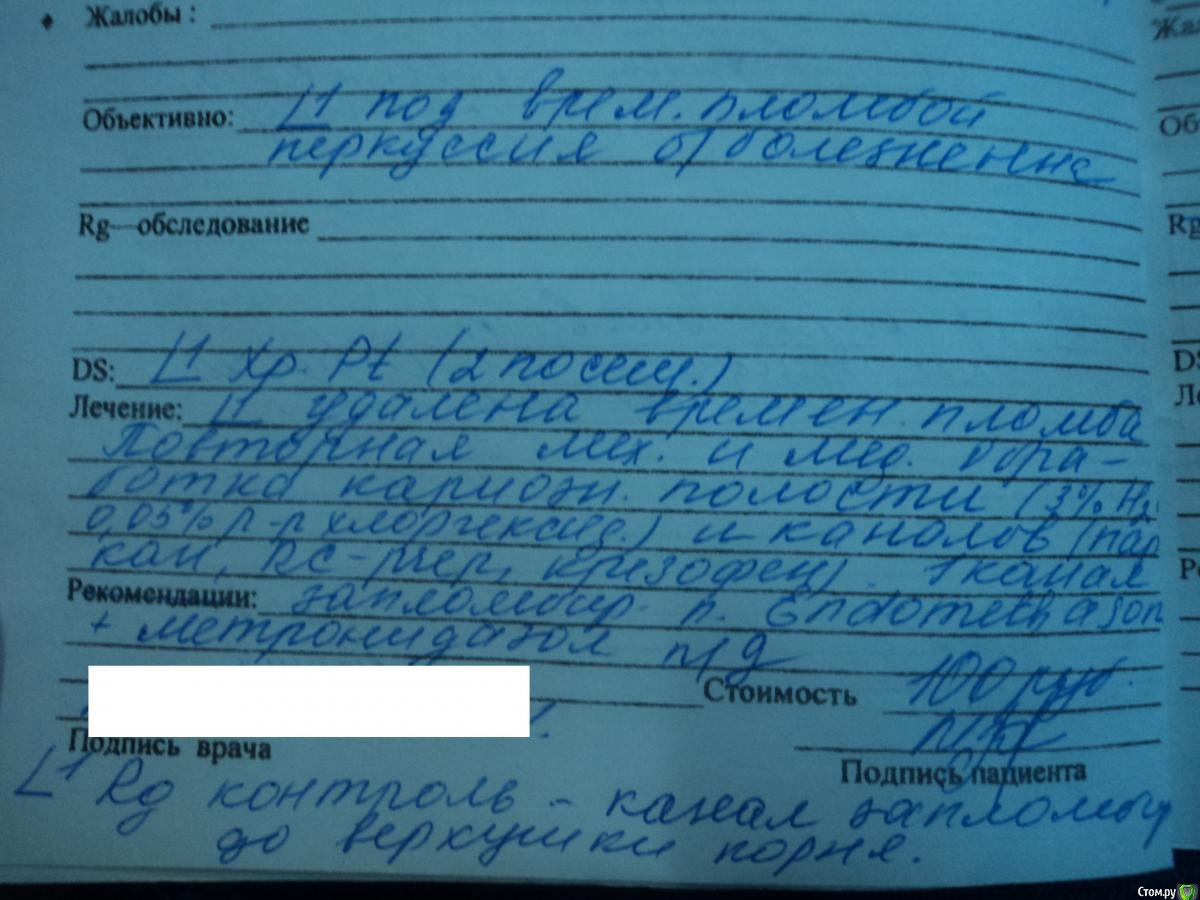 Жалобы :
Объективно: L1 под врем. пломбой
перкуссия б/болезненна
Rg—обследование
DS: L1 Хр. Pt (2 посещ.)
Лечение: L1 удалена времен. пломба
Повторная мех. и мед. обра-
ботка кариозн. полости (3% H2
0,05% р-р хлоргексид.) и каналов (пар
кан, RC-преп, крезофен). 1 канал
Рекомендации: запломбир. п. Endomethason
+ метронидазол п/д
Стоимость 100 руб.
Подпись врача
Подпись пациента
L1 Rg контроль - канал запломбир
до верхушки корня.
Жа
Об
Rg
DS
Ле
Ре
Стом.ру